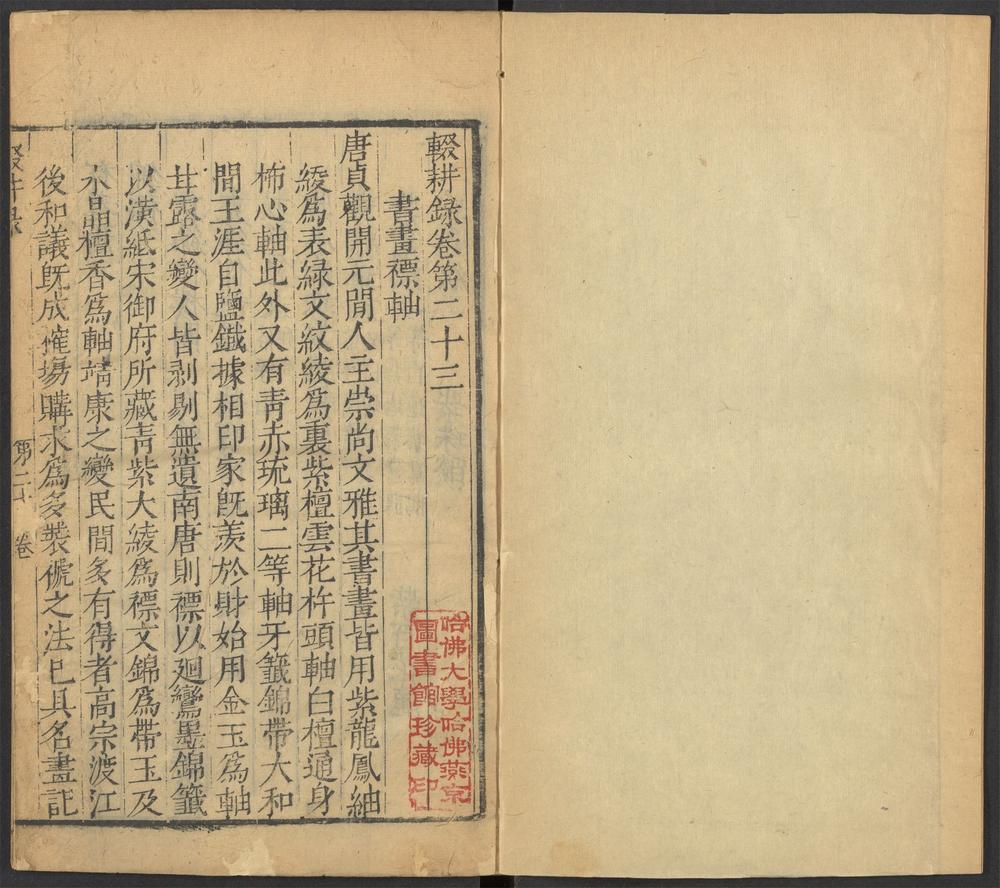 輟耕録卷第二十三
書畫褾軸
唐貞觀開元間人主崇尚文雅其書畫皆用紫龍鳳紬
綾爲表緑文紋綾爲裏紫檀雲花杵頭軸白檀通身
柿心軸此外又有靑赤琉璃二等軸牙籖錦帶大和
間王涯自鹽鐵據相印家旣羡於財始用金玉爲軸
甘露之變人皆剥剔無遺南唐則褾以廻鸞墨錦籖
以潢紙宋御府所藏靑紫大綾爲褾文錦爲帶玉及
水晶檀香爲軸靖康之變民間多有得者高宗渡江
後和議旣成搉塲購求爲多裝褫之法已具名畫記
哈佛大學哈佛燕京
圖書館珍藏印